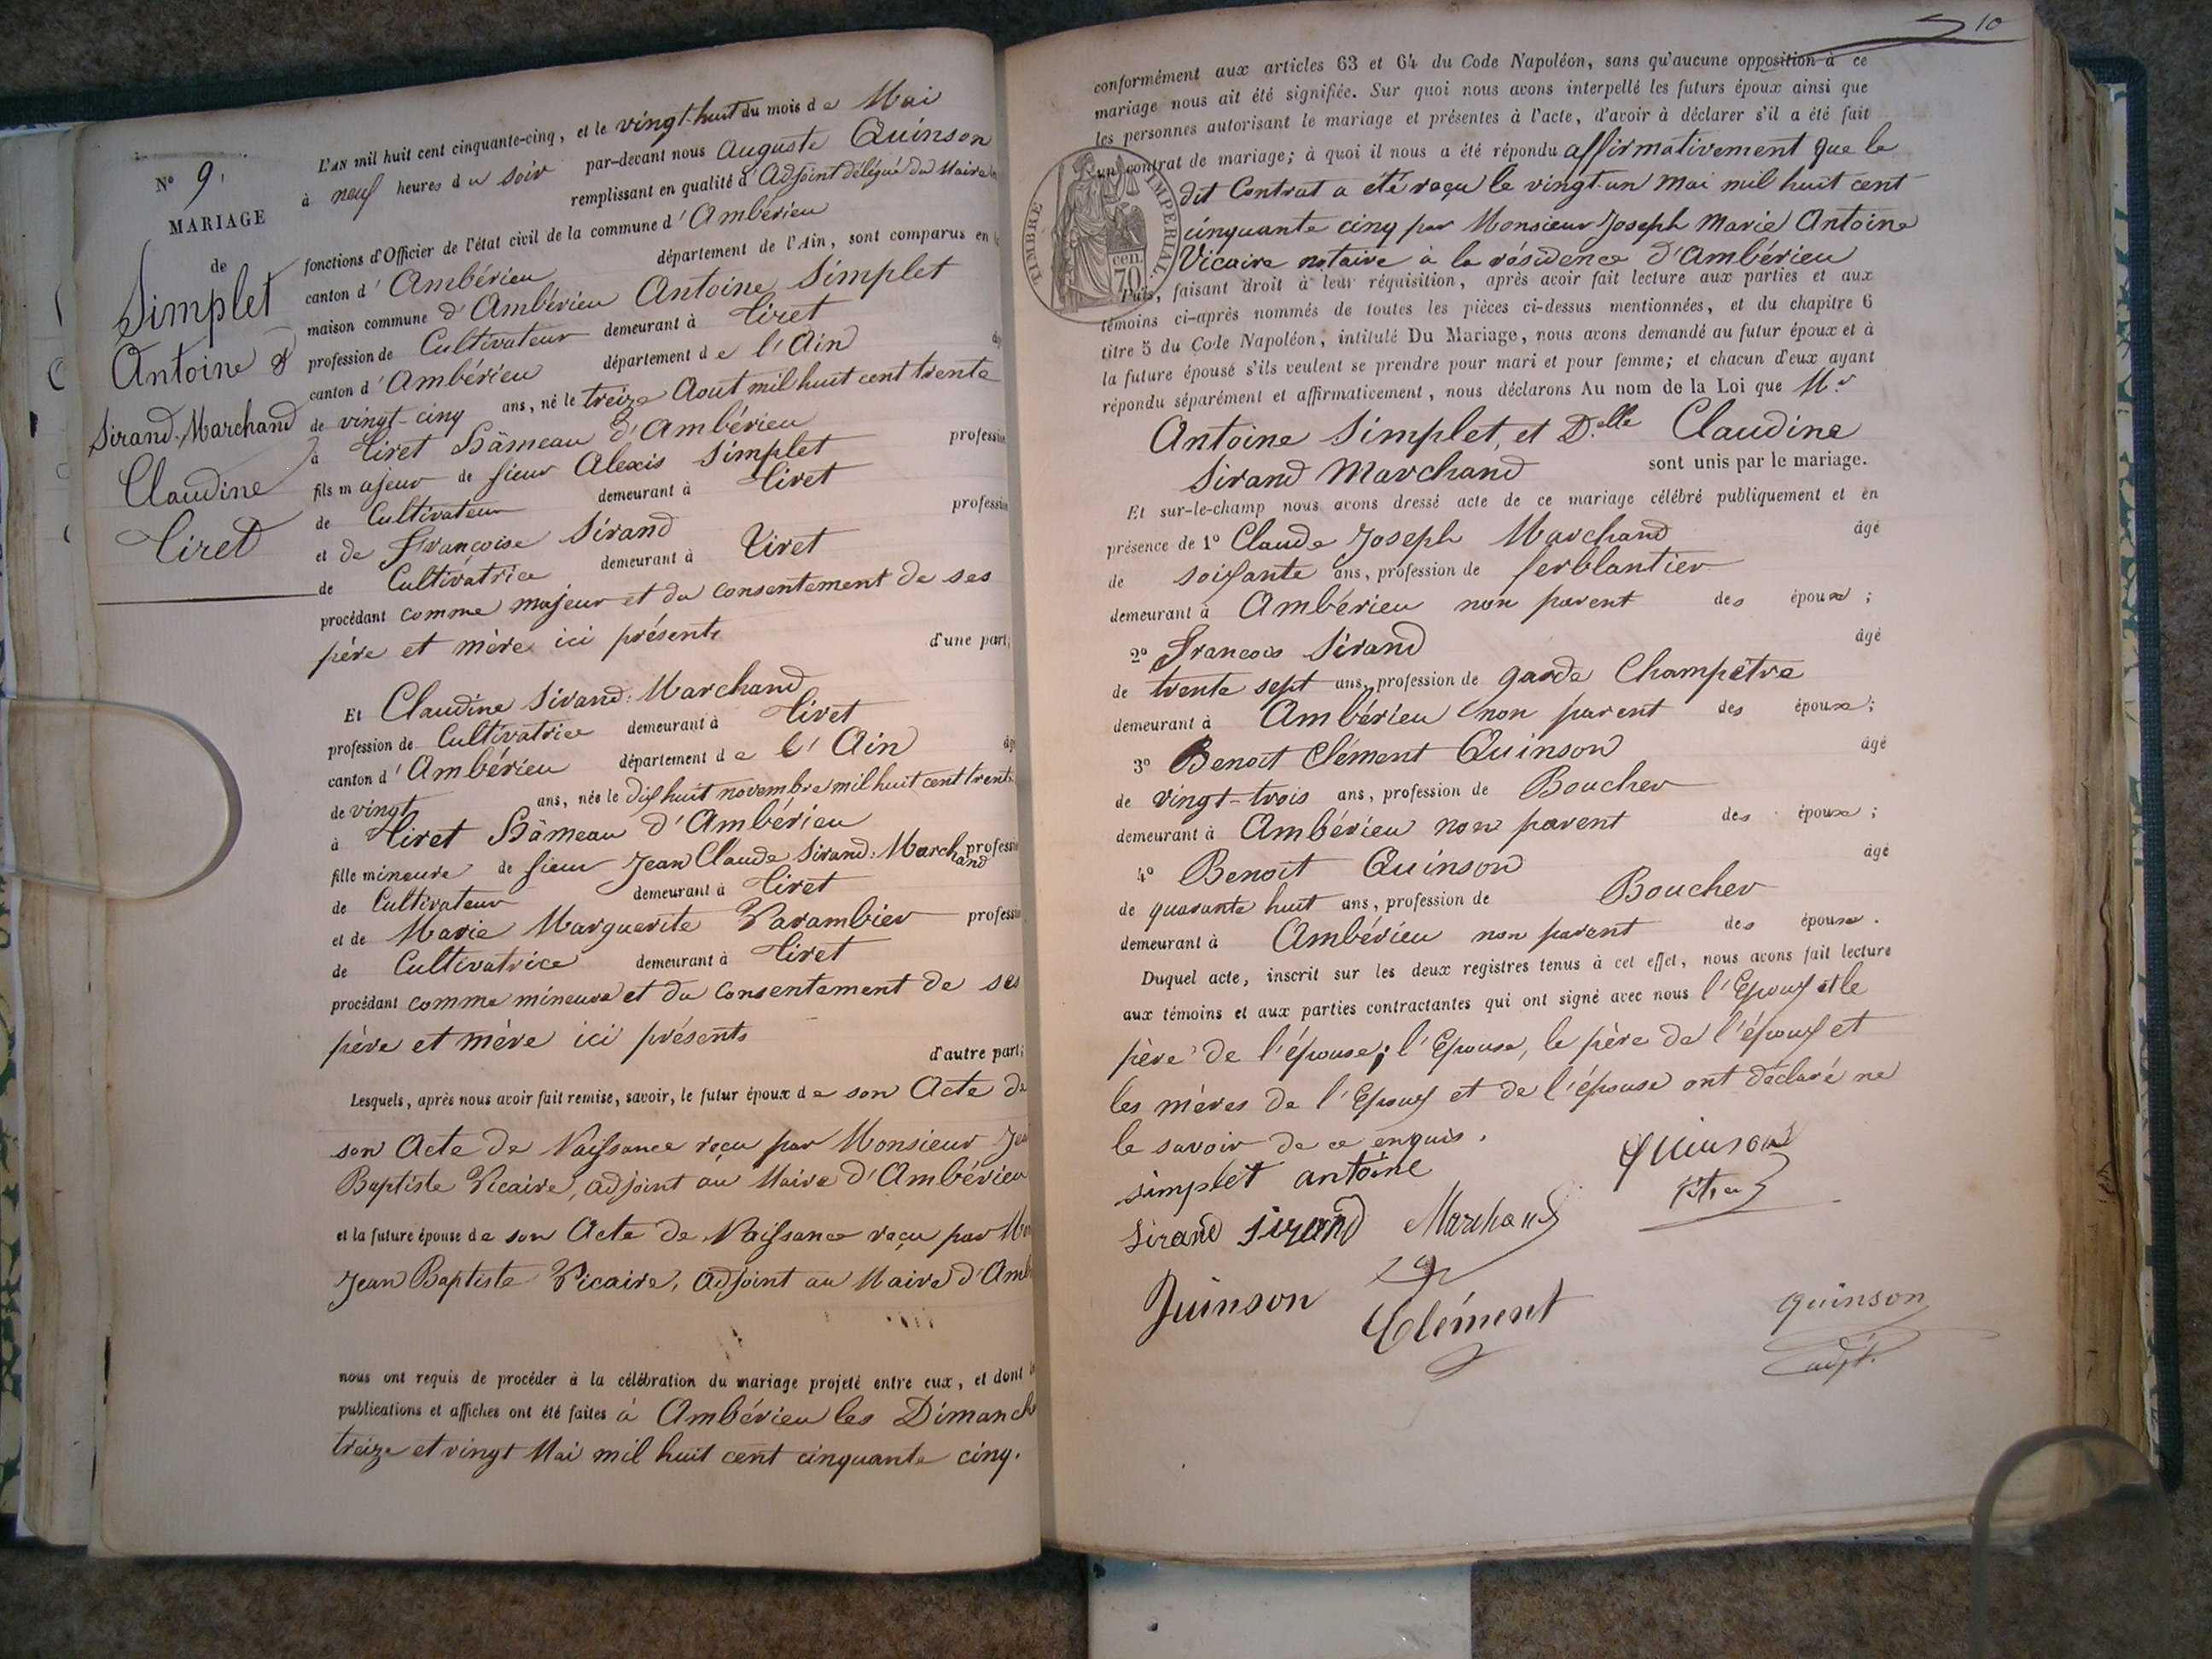 N° 9.
MARIAGE
de
Simplet
Antoine &
Sirand-Marchand
Claudine
Tiret
L'AN mil huit cent cinquante-cinq, et le vingt-huit du mois de Mai
à neuf heures du soir par-devant nous Auguste Quinson
remplissant en qualité d'Adjoint délégué du Maire les
fonctions d'Officier de l'état civil de la commune d'Ambérieu
canton d'Ambérieu département de l'Ain, sont comparus en la
maison commune d'Ambérieu Antoine Simplet
profession de Cultivateur demeurant à Tiret
canton d'Ambérieu département de l'Ain âgé
de vingt-cinq ans, né le treize Aout mil huit cent trente
à Tiret Hâmeau d'Ambérieu
fils majeur de sieur Alexis Simplet profession
de Cultivateur demeurant à Tiret
et de Françoise Sirand profession
de Cultivatrice demeurant à Tiret
procédant comme majeur et du consentement de ses
père et mère ici présents d'une part;
Et Claudine Sirand-Marchand
profession de Cultivatrice demeurant à Tiret
canton d'Ambérieu département de l'Ain âgé
de vingt ans, née le dix huit novembre mil huit cent trente
à Tiret Hâmeau d'Ambérieu
fille mineure de sieur Jean Claude Sirand-Marchand profession
de Cultivateur demeurant à Tiret
et de Marie Marguerite Varambier profession
de Cultivatrice demeurant à Tiret
procédant comme mineure et du consentement de ses
père et mère ici présents d'autre part;
Lesquels, après nous avoir fait remise, savoir, le futur époux de son Acte de
son Acte de Naissance reçu par Monsieur Jean
Baptiste Vicaire, adjoint au Maire d'Ambérieu
et la future épouse de son Acte de Naissance reçu par Mr
Jean Baptiste Vicaire, adjoint au Maire d'Amb
nous ont requis de procéder à la célébration du mariage projeté entre eux, et dont les
publications et affiches ont été faites à Ambérieu les Dimanche
treize et vingt Mai mil huit cent cinquante cinq.
10
conformément aux articles 63 et 64 du Code Napoléon, sans qu'aucune opposition à ce
mariage nous ait été signifiée. Sur quoi nous avons interpellé les futurs époux ainsi que
les personnes autorisant le mariage et présentes à l'acte, d'avoir à déclarer s'il a été fait
un contrat de mariage; à quoi il nous a été répondu affirmativement que le
dit Contrat a été reçu le vingt-un Mai mil huit cent
cinquante cinq par Monsieur Joseph Marie Antoine
Vicaire notaire à la résidence d'Ambérieu
TIMBRE IMPERIAL
70 cen.
Puis, faisant droit à leur réquisition, après avoir fait lecture aux parties et aux
témoins ci-après nommés de toutes les pièces ci-dessus mentionnées, et du chapitre 6
titre 5 du Code Napoléon, intitulé Du Mariage, nous avons demandé au futur époux et à
la future épouse s'ils veulent se prendre pour mari et pour femme; et chacun d'eux ayant
répondu séparément et affirmativement, nous déclarons Au nom de la Loi que Mr
Antoine Simplet, et Delle Claudine
Sirand Marchand sont unis par le mariage.
Et sur-le-champ nous avons dressé acte de ce mariage célébré publiquement et en
présence de 1° Claude Joseph Marchand âgé
de soixante ans, profession de ferblantier
demeurant à Ambérieu non parent des époux;
2° François Sirand âgé
de trente sept ans, profession de garde Champêtre
demeurant à Ambérieu non parent des époux;
3° Benoit Clément Quinson âgé
de vingt-trois ans, profession de Boucher
demeurant à Ambérieu non parent des époux;
4° Benoit Quinson âgé
de quarante huit ans, profession de Boucher
demeurant à Ambérieu non parent des époux.
Duquel acte, inscrit sur les deux registres tenus à cet effet, nous avons fait lecture
aux témoins et aux parties contractantes qui ont signé avec nous l'Epoux et le
père de l'épouse; l'Epouse, le père de l'époux et
les mères de l'Epoux et de l'épouse ont déclaré ne
le savoir de ce enquis.
simplet antoine Quinson
Sirand sirand Marchand
Quinson Clément quinson
adjt.